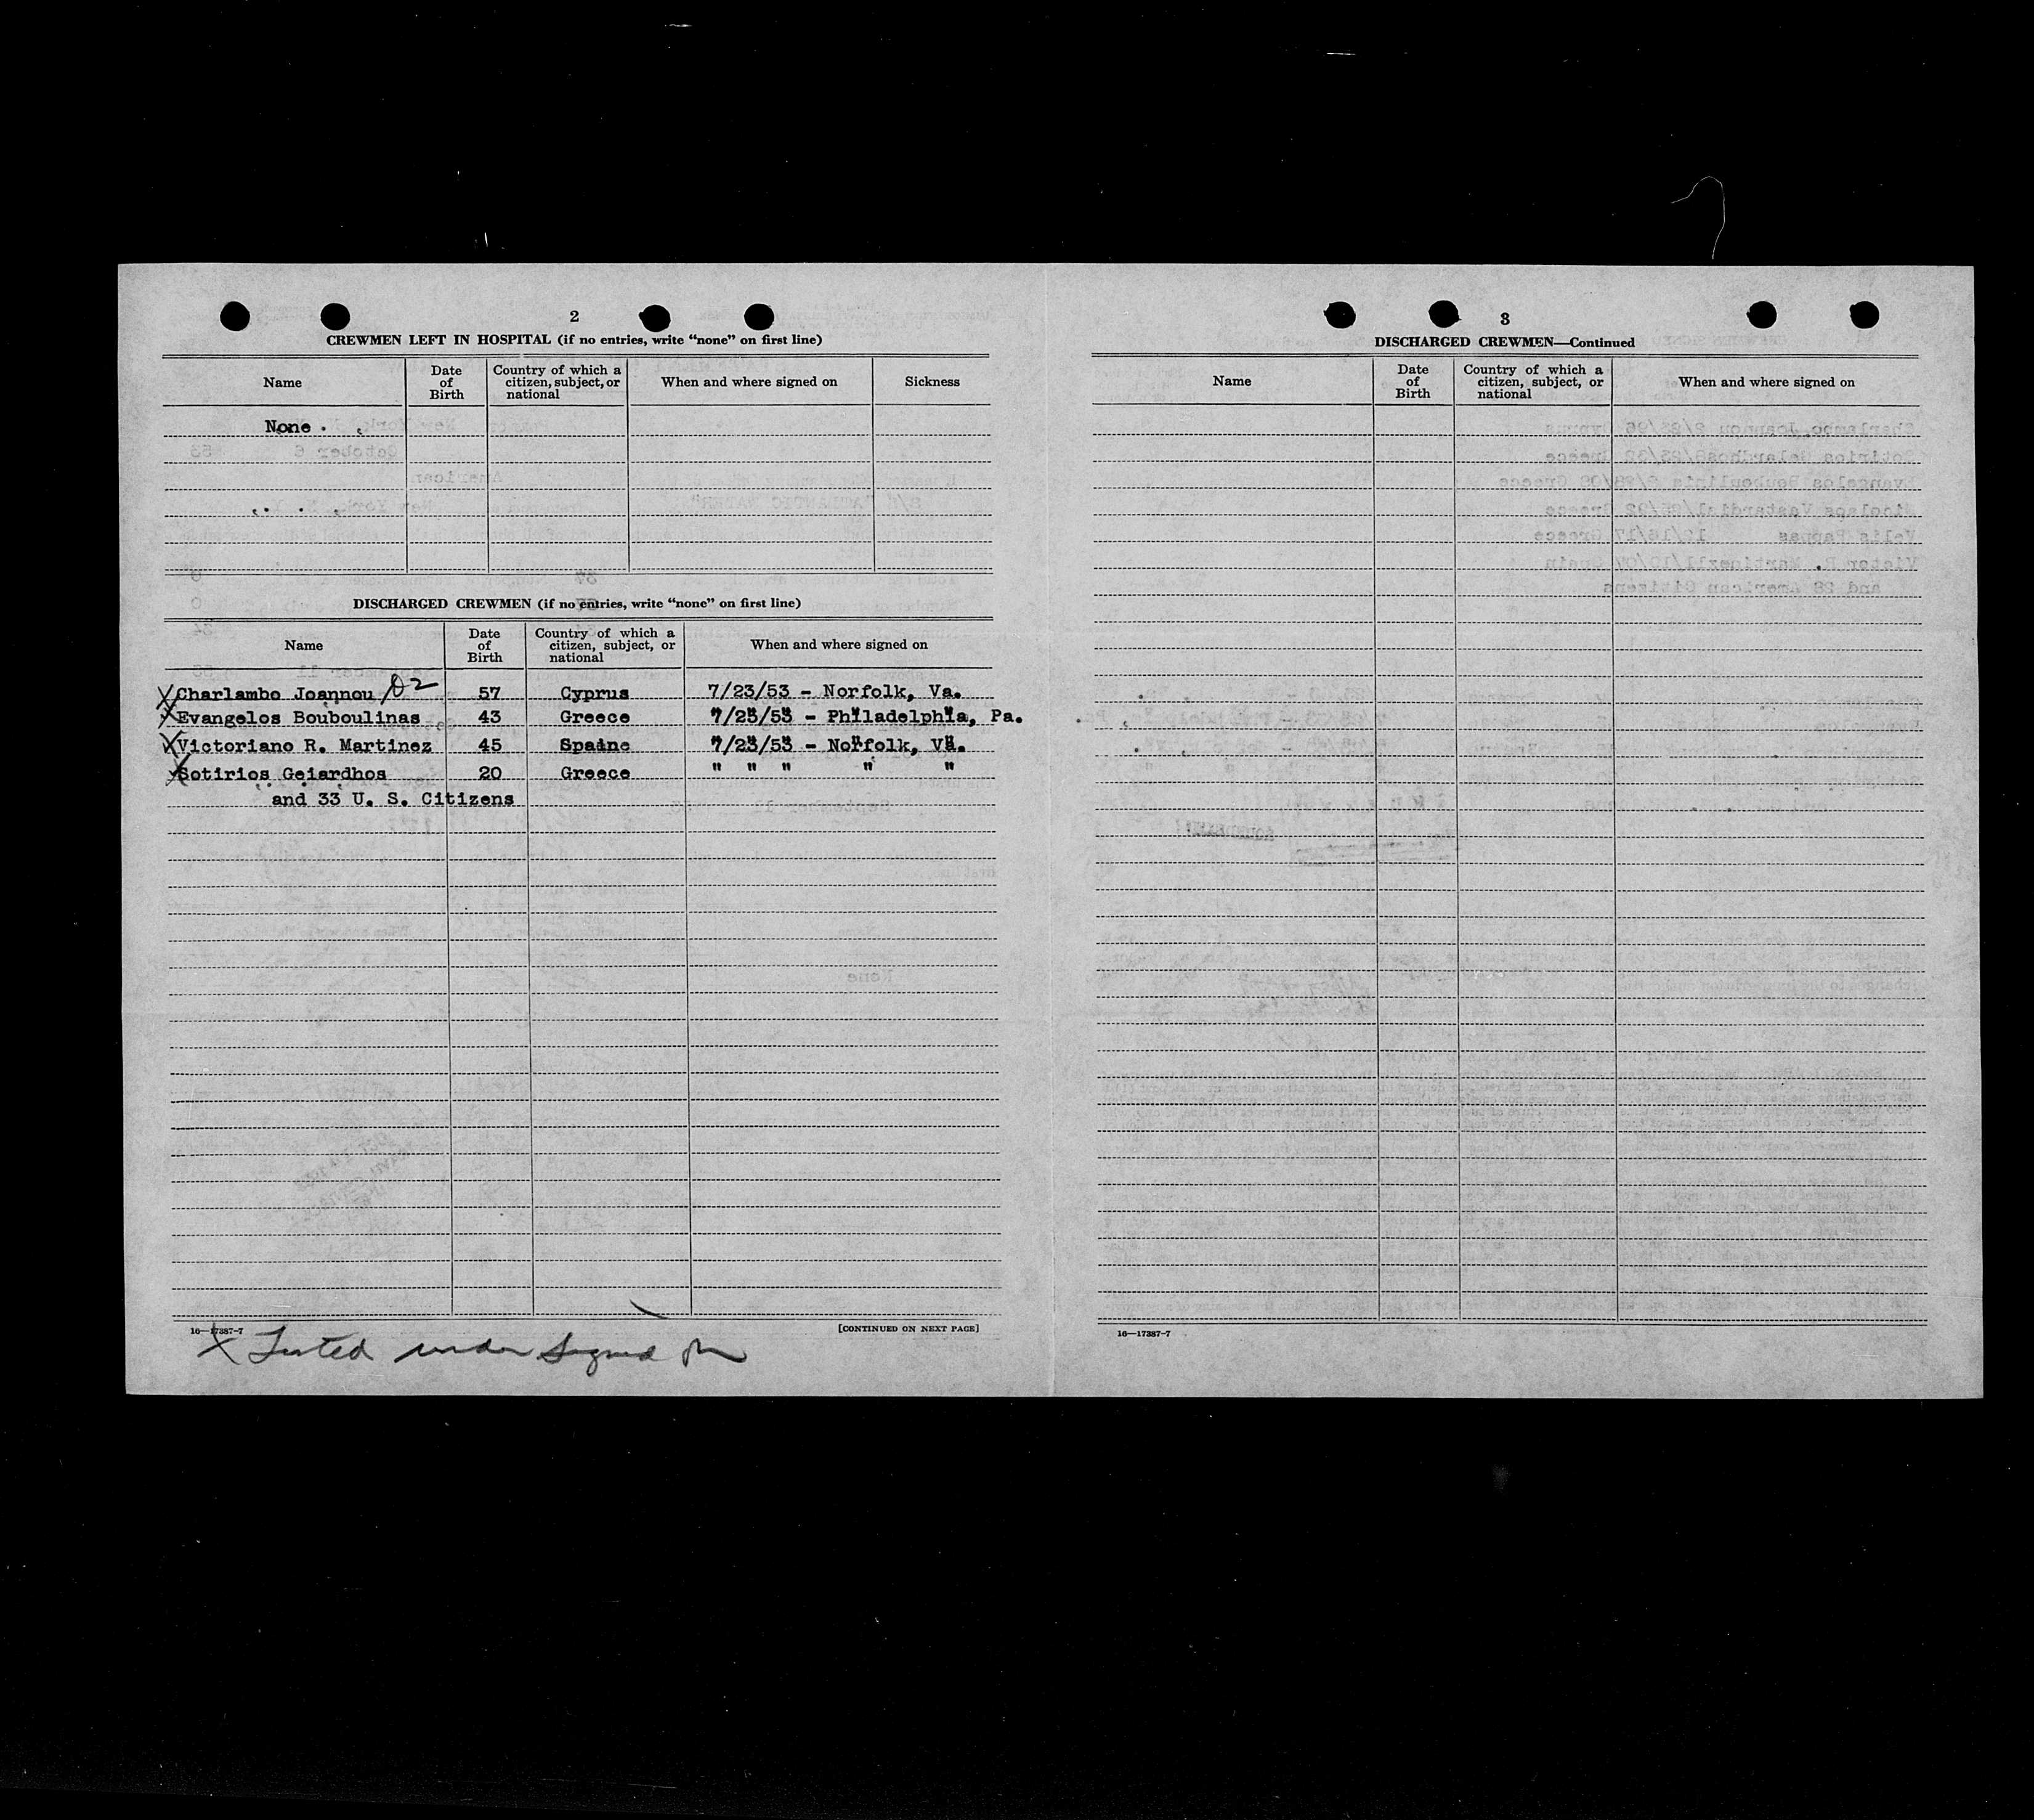 2
CREWMEN LEFT IN HOSPITAL (if no entries, write "none" on first line)
Name Date of Birth Country of which a citizen, subject, or national When and where signed on Sickness
None.
DISCHARGED CREWMEN (if no entries, write "none" on first line)
Name Date of Birth Country of which a citizen, subject, or national When and where signed on
X Charlambo Joannou 57 Cyprus 7/23/53 - Norfolk, Va.
X Evangelos Bouboulinas 43 Greece 7/23/53 - Philadelphia, Pa.
X Victoriano R. Martinez 45 Spaine 7/23/53 - Norfolk, Va.
X Sotirios Geiardhos 20 Greece " " " " "
and 33 U. S. Citizens
16—17387-7
[CONTINUED ON NEXT PAGE]
X Listed under Signed on
3
DISCHARGED CREWMEN—Continued
Name Date of Birth Country of which a citizen, subject, or national When and where signed on
16—17387-7